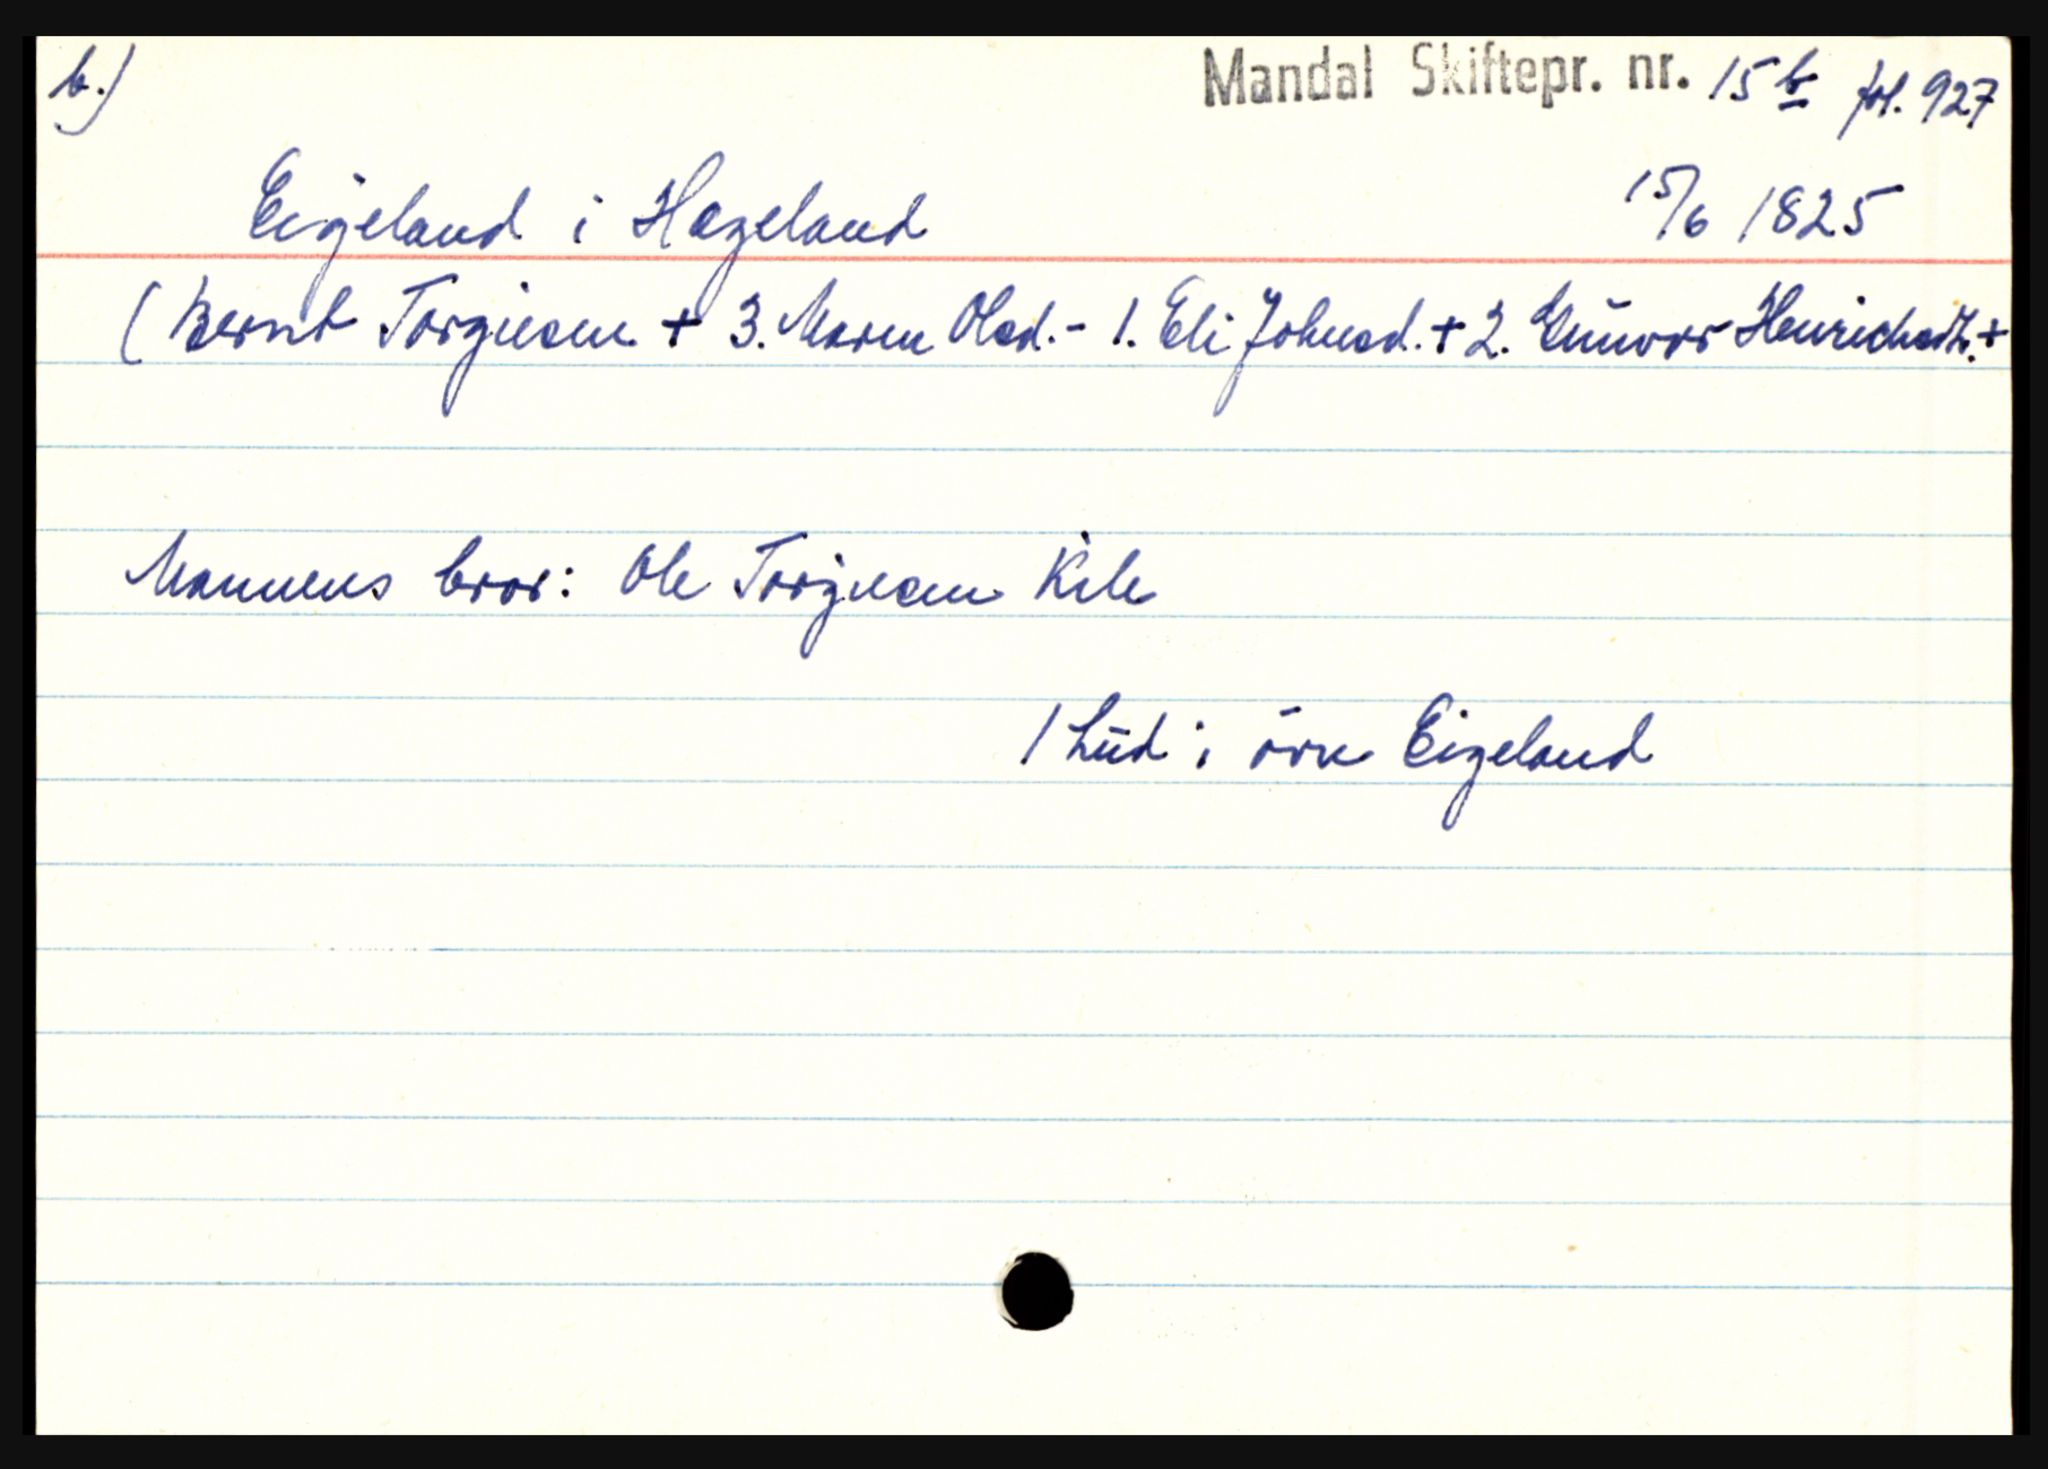 b.)
Mandal Skiftepr. nr. 15 b fol. 927
Eigeland i Hægeland 15/6 1825
(Bernt Torgiesen + 3. Maren Olsd. - 1. Eli Johnsd. + 2. Gunvor Henrichsdt. +
Mannens bror: Ole Torgiesen Kile
1 hud i øvre Eigeland